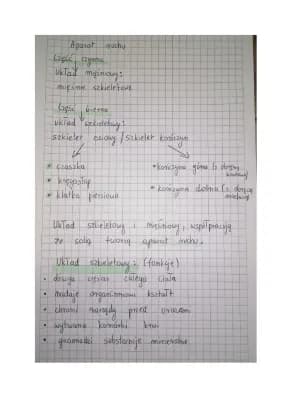 Aparat ruchu
Część czynna
Układ mięśniowy:
mięśnie szkieletowe
Część bierna
układ szkieletowy:
szkielet osiowy / szkielet kończyn
czaszka
kończyna górna (z obręczą
kręgosłup
kończyna dolna (z obręczą
klatka piersiowa
Układ szkieletowy i mięśniowy, współpracują
ze sobą tworzą aparat ruchu.
Układ szkieletowy: (funkcje)
• dźwiga ciężar całego ciała
• nadaje organizmowi kształt
• chroni narządy przed urazem
• wytwarza komórki krwi
• gromadzi substancje mineralne